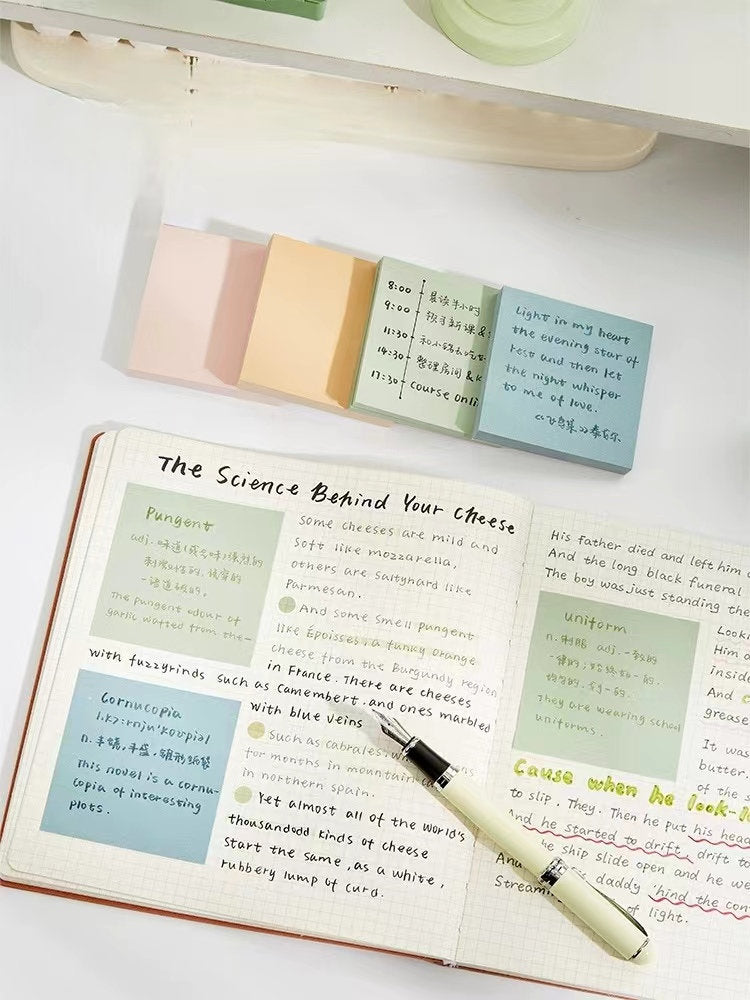 8:00 晨读半小时
9:00 预习新课 &
11:30 和小
14:30 整理房间 &
17:30 course onli
Light in my heart
the evening star of
rest and then let
the night whisper
to me of love.
《飞鸟集》泰戈尔
The Science Behind Your Cheese
Pungent
adj. 味道(或气味)强烈的
刺激性的,
The pungent odour of
garlic wafted from the-
Some cheeses are mild and
soft like mozzarella,
others are saltynard like
Parmesan.
And some smell pungent
like Époisses, a funky orange
cheese from the Burgundy region
in France. There are cheeses
with fuzzyrinds such as Camembert, and ones marbled
with blue veins
Such as cabrales, w
for months in mountain ca
in northern Spain.
Yet almost all of the world's
thousandodd kinds of cheese
start the same, as a white,
rubbery lump of curd.
Cornucopia
n. 丰饶,丰盛,
This novel is a cornu-
copia of interesting
plots.
His father died and left him
And the long black funeral
The boy was just standing the
uniform
n. 制服 adj. 一致的
They are wearing school
uniforms.
Looke
Him
inside
And
grease
It was
butter.
of the s
Cause when he look-l
to slip. They. Then he put his head
And he started to drift, drift to
he ship slide open and he we
And daddy 'hind the con
Streami of light.